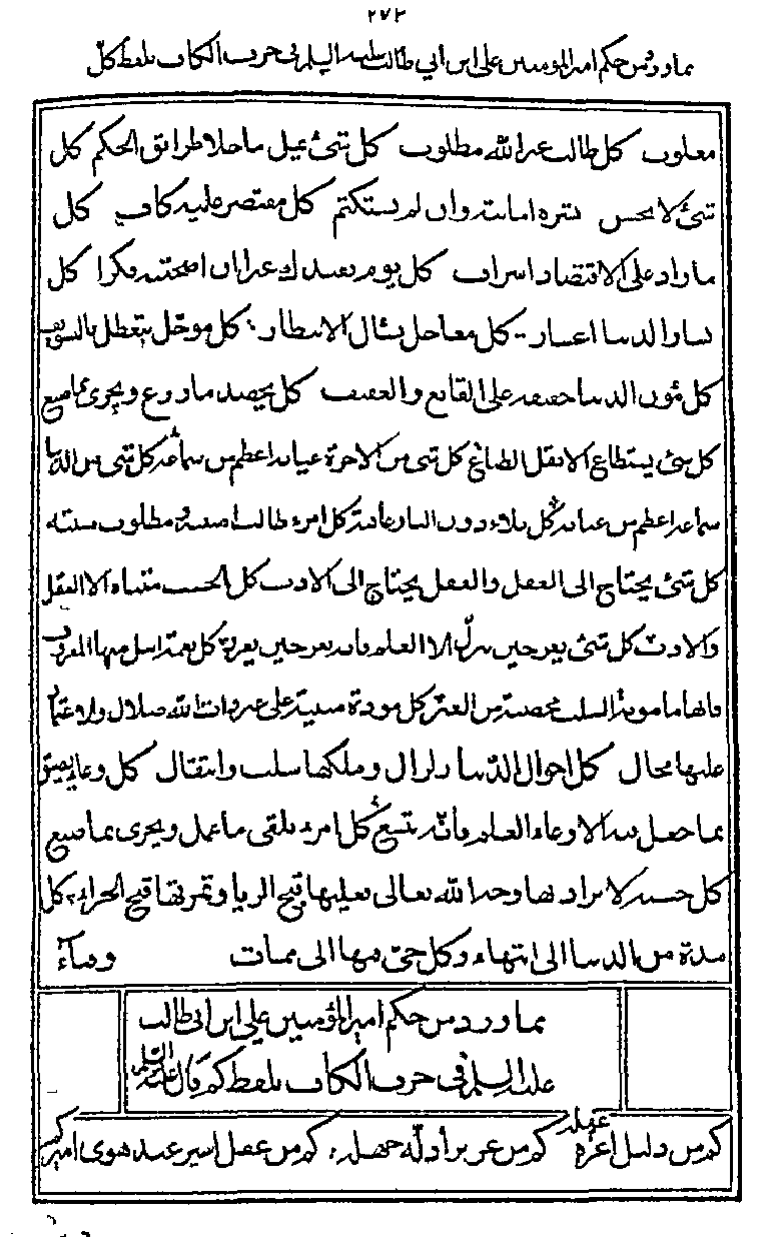 ٢٧٢
مما ورد من حكم امير المؤمنين على ابن أبي طالب عليه السلام في حرف الكاف بلفظ كلّ
مغلوب كل طالب غير الله مطلوب كل شئ يميل ما خلا طرائق الحكم كل
شئ لا يحسن نشره امانة وان لم يستكتم كل مقتصر عليه كاف كل
ما زاد على الاقتصاد اسراف كل يوم يفيدك عبرا ان اصحبته فكرا كل
يسار الدنيا اعسار كل معاجل يسأل الانظار كل مؤجّل يتعلل بالتسويف
كل مؤن الدنيا خفيفة على القانع والعفيف كل يحصد ما زرع ويجزى بما صنع
كل شئ يستطاع الا نقل الطباع كل شئ من الاخرة عيانه اعظم من سماعه كل شئ من الدنيا
سماعه اعظم من عيانه كل بلاء دون النار عافية كل امرء طالب امنية ومطلوب منيته
كل شئ يحتاج الى العقل والعقل يحتاج الى الادب كل الحسب متناه الا العقل
والادب كل شئ يعز حين ينزر الا العلم فانه يعز حين يغزر كل نعمة انيل منها المعروف
فانها مأمونة السلب محصنة من الغير كل مودة مبنية على غير ذات الله ضلال والاعتماد
عليها محال كل احوال الدنيا زلزال وملكها سلب وانتقال كل وعاء يضيق
بما جعل فيه الا وعاء العلم فانه يتسع كل امرء يلقى ما عمل ويجزى بما صنع
كل حسنة لا يراد بها وجه الله تعالى فعليها قبح الريا وثمرتها قبح الجزاء كل
مدة من الدنيا الى انتهاء وكل حيّ فيها الى ممات وفناء
مما ورد من حكم امير المؤمنين على ابن ابى طالب
عليه السلام في حرف الكاف بلفظ كم قال عليه السلام
كم من ذليل اعزه عقله كم من عزيز أذلّه جهله كم من عقل اسير عند هوى امير كم